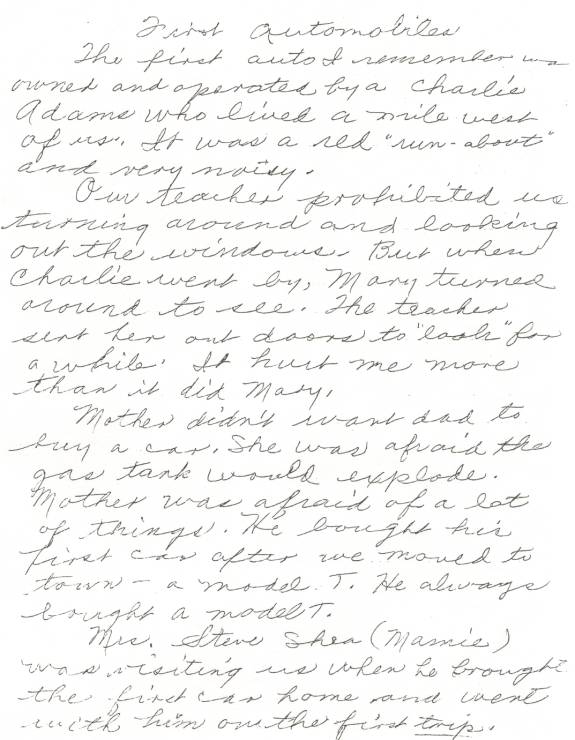 First Automobiles
The first auto I remember was
owned and operated by a Charlie
Adams who lived a mile west
of us. It was a red "run-about"
and very noisy.
Our teacher prohibited us
turning around and looking
out the windows. But when
Charlie went by, Mary turned
around to see. The teacher
sent her out doors to "look" for
a while. It hurt me more
than it did Mary.
Mother didn't want dad to
buy a car. She was afraid the
gas tank would explode.
Mother was afraid of a lot
of things. He bought his
first car after we moved to
town - a model T. He always
bought a model T.
Mrs. Steve Shea (Mamie)
was visiting us when he brought
the first car home and went
with him on the first trip.